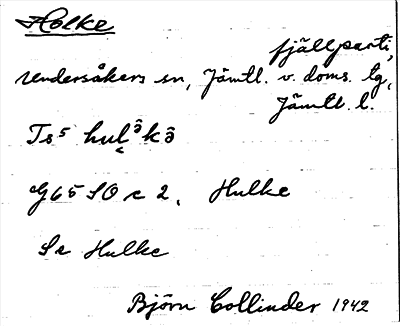 Holke
fjällparti,
Undersåkers sn, Jämtl. v. doms. tg,
Jämtl. l.
Ts5 hulə̂kə̂
G65 SO c 2. Hulke
Se Hulke
Björn Collinder 1942